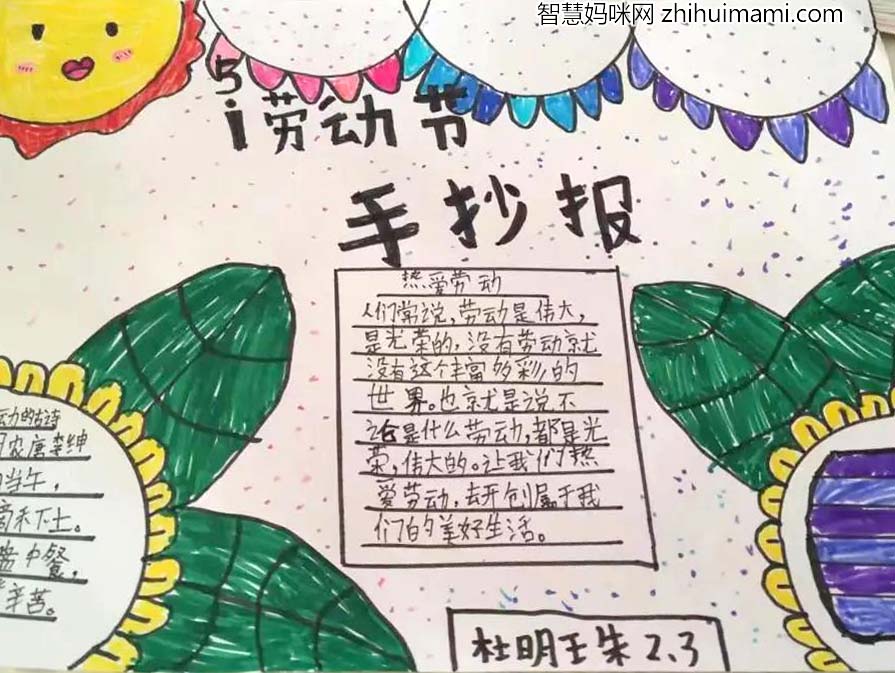 智慧妈咪网 zhihuimami.com
5
i劳动节
手抄报
热爱劳动
人们常说,劳动是伟大,
是光荣的,没有劳动就
没有这个丰富多彩的
世界。也就是说不
论是什么劳动,都是光
荣,伟大的。让我们热
爱劳动,去开创属于我
们的美好生活。
动的古诗
农唐李绅
当午,
禾下土。
盘中餐,
辛苦。
杜明王朱 2.3